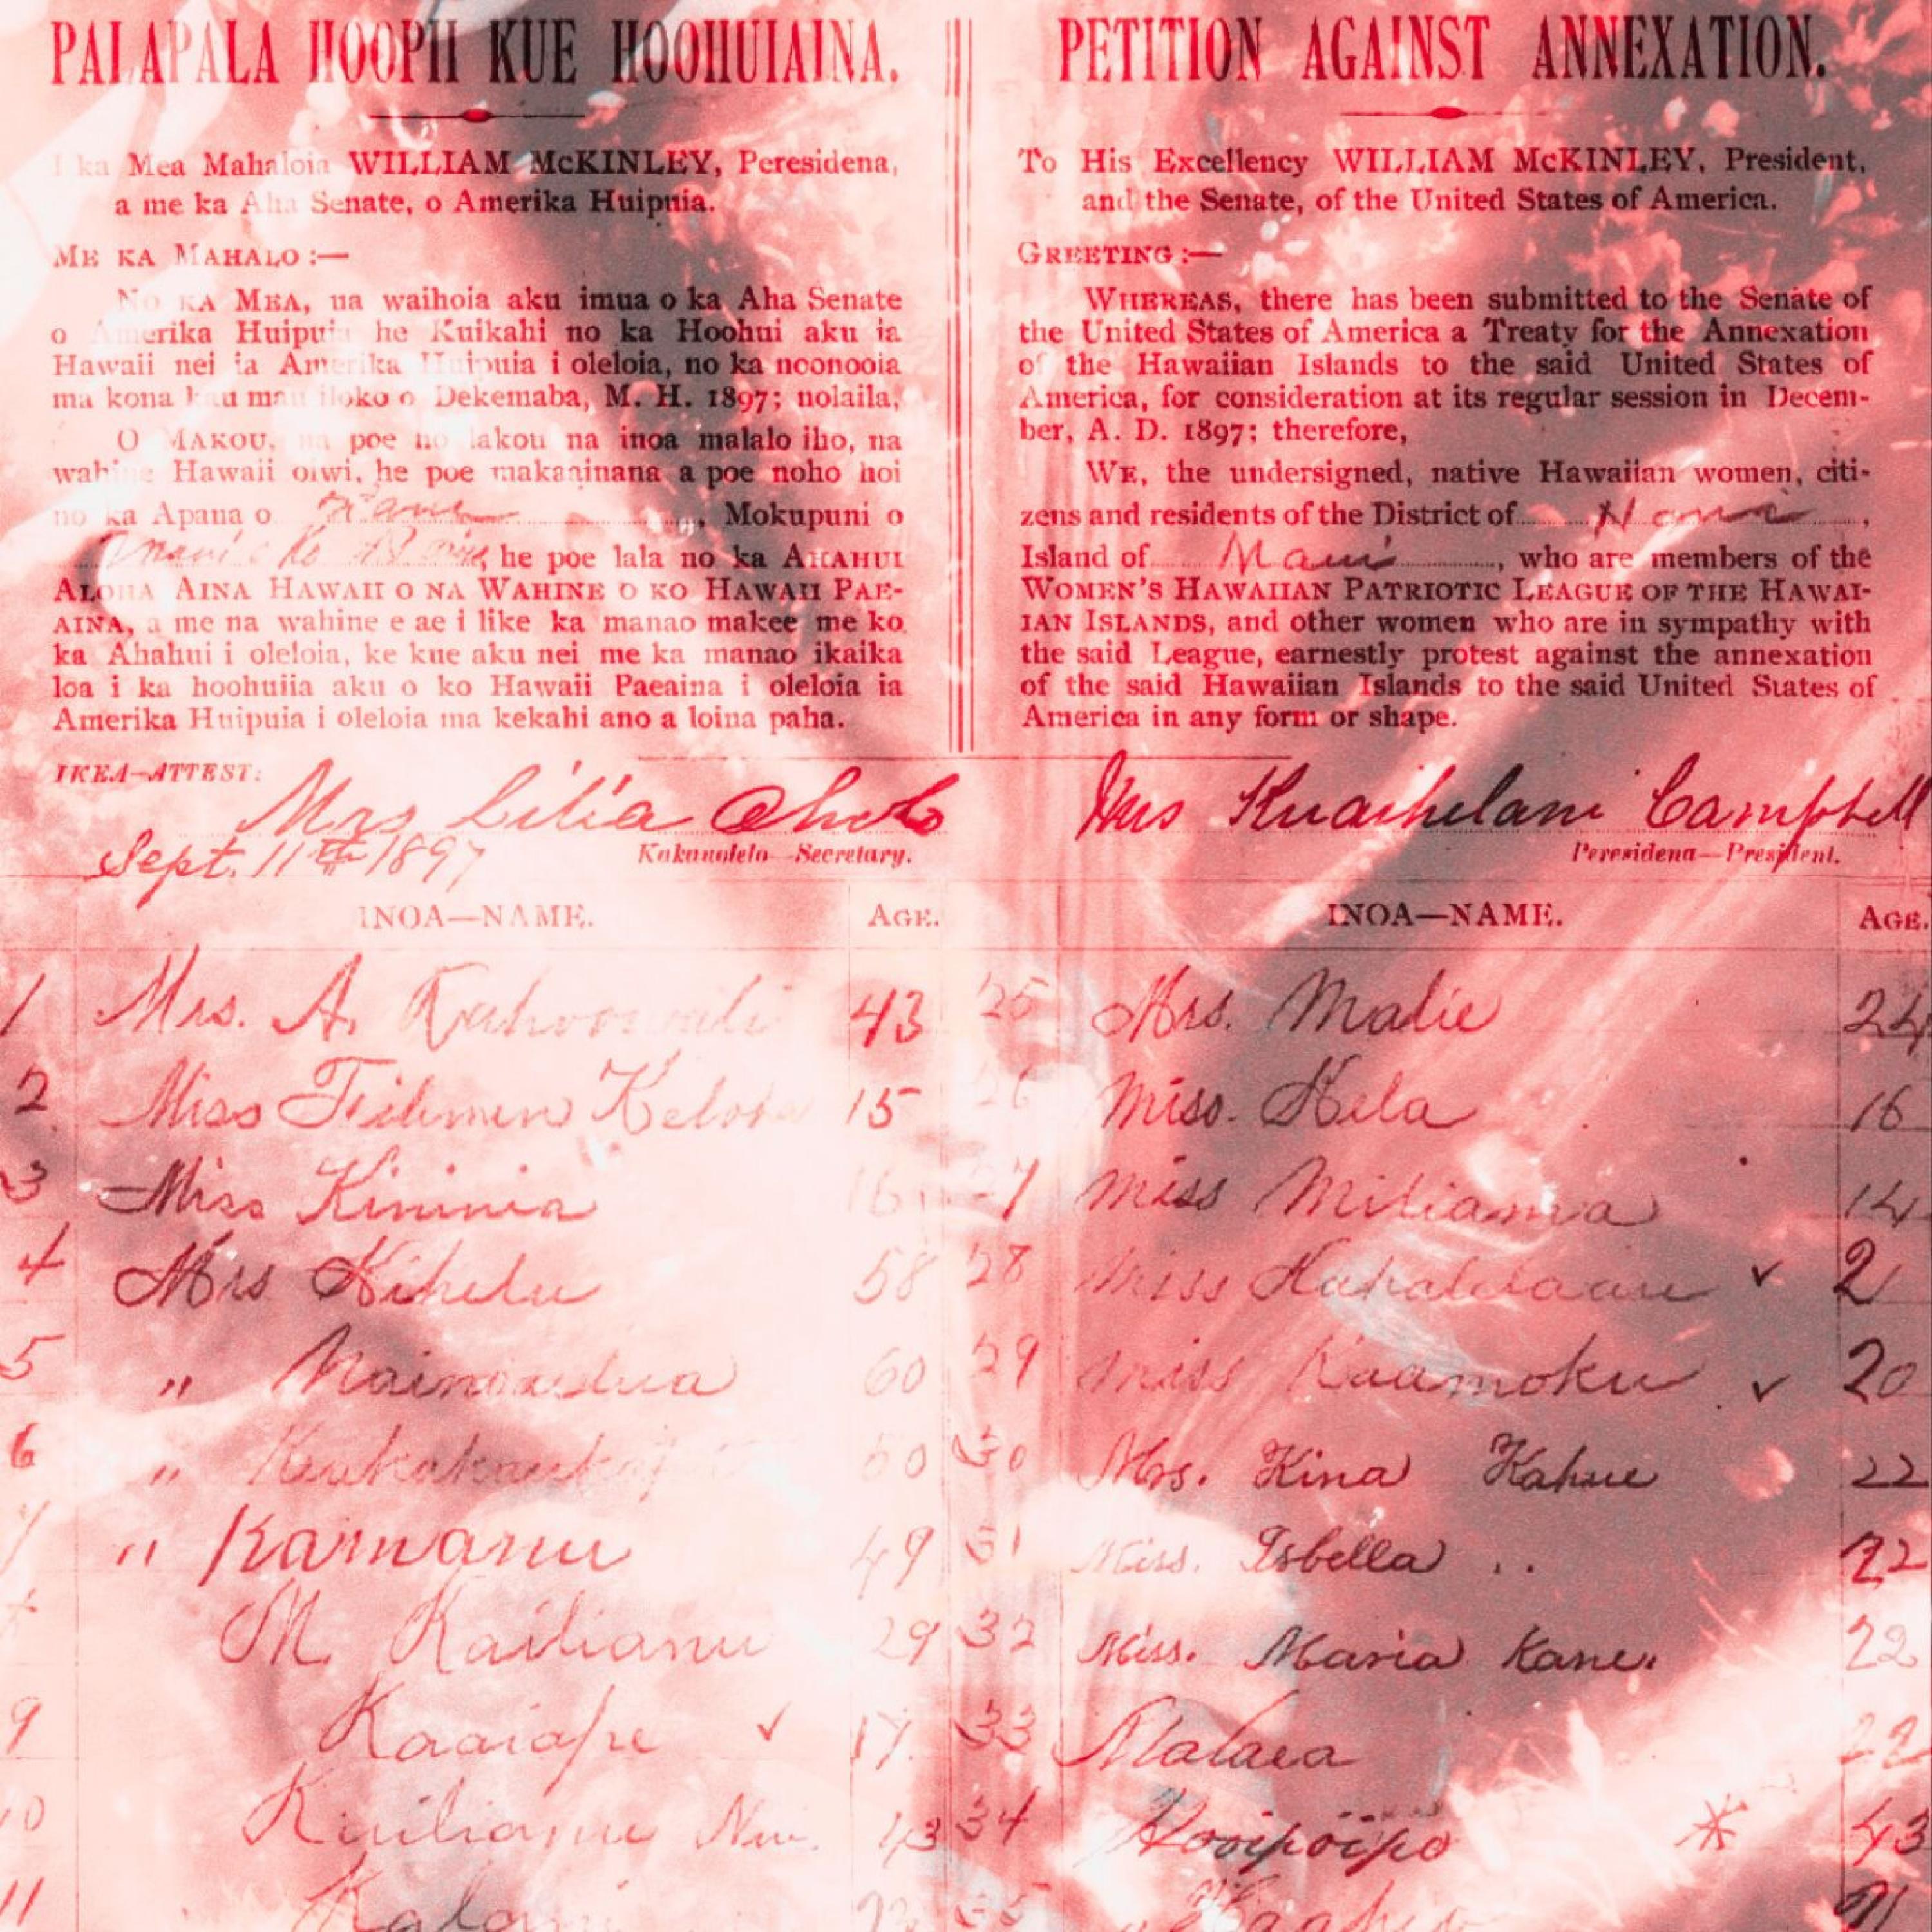 PALAPALA HOOPII KUE HOOHUIAINA.
I ka Mea Mahaloia WILLIAM McKINLEY, Peresidena,
a me ka Aha Senate, o Amerika Huipuia.
ME KA MAHALO :—
NO KA MEA, ua waihoia aku imua o ka Aha Senate
o Amerika Huipuia he Kuikahi no ka Hoohui aku ia
Hawaii nei ia Amerika Huipuia i oleloia, no ka noonooia
ma kona kau mau iloko o Dekemaba, M. H. 1897; nolaila,
O MAKOU, na poe no lakou na inoa malalo iho, na
wahine Hawaii oiwi, he poe makaainana a poe noho hoi
no ka Apana o Hana, Mokupuni o
Maui, he poe lala no ka AHAHUI
ALOHA AINA HAWAII O NA WAHINE O KO HAWAII PAE-
AINA, a me na wahine e ae i like ka manao makee me ko
ka Ahahui i oleloia, ke kue aku nei me ka manao ikaika
loa i ka hoohuiia aku o ko Hawaii Paeaina i oleloia ia
Amerika Huipuia i oleloia ma kekahi ano a loina paha.
PETITION AGAINST ANNEXATION.
To His Excellency WILLIAM McKINLEY, President,
and the Senate, of the United States of America.
GREETING :—
WHEREAS, there has been submitted to the Senate of
the United States of America a Treaty for the Annexation
of the Hawaiian Islands to the said United States of
America, for consideration at its regular session in Decem-
ber, A. D. 1897; therefore,
WE, the undersigned, native Hawaiian women, citi-
zens and residents of the District of Hana,
Island of Maui, who are members of the
WOMEN'S HAWAIIAN PATRIOTIC LEAGUE OF THE HAWAI-
IAN ISLANDS, and other women who are in sympathy with
the said League, earnestly protest against the annexation
of the said Hawaiian Islands to the said United States of
America in any form or shape.
IKEA—ATTEST:
Mrs Lilia Aholo
Sept. 11th 1897
Kakauolelo—Secretary.
Mrs Kuaihelani Campbell
Peresidena—President.
INOA—NAME. AGE.
1 Mrs. A. 43
2 Miss 15
3 Miss Kininia 16
4 Mrs Kihelu 58
5 " 60
6 "
7 " Kamanu 49
M. Kailianu 29
9 Kaaiape ✓ 17
10 43
11
INOA—NAME. AGE.
25 Mrs. Malie 24
26 Miss. Hela 16
27 Miss Miliama 14
28 Miss ✓ 2
29 Miss Kaamoku ✓ 20
30 Mrs. Kina Kahue 22
31 Miss. Isbella .. 22
32 Miss. Maria Kane. 22
33 Malaea 22
34 Hooipoipo * 43
35